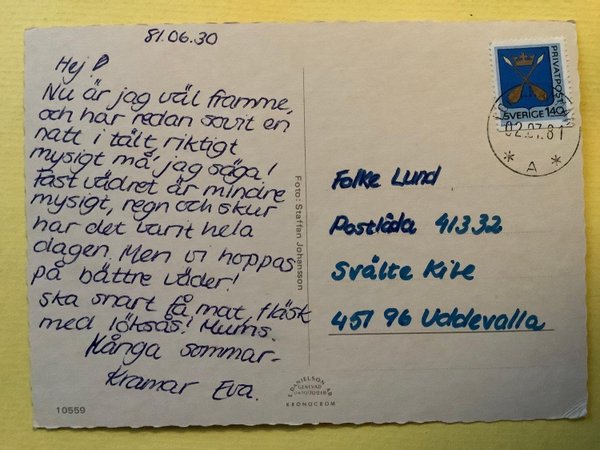 81.06.30
Hej!
Nu är jag väl framme,
och har redan sovit en
natt i tält, riktigt
mysigt må jag säga!
Fast vädret är mindre
mysigt, regn och skur
har det varit hela
dagen. Men vi hoppas
på bättre väder!
ska snart få mat, fläsk
med löksås! Mums.
Många sommar-
kramar Eva.
10559
Foto: Staffan Johansson
E. DANIELSON AB
KRONOCROM
PRIVATPOST
SVERIGE 140
02.07.81
* A *
Folke Lund
Postlåda 41332
Svälte Kile
451 96 Uddevalla